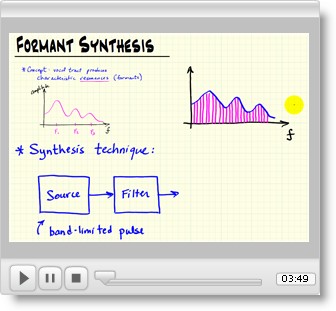 FORMANT SYNTHESIS
* Concept - vocal tract produces
characteristic resonances (formants)
amplitude
F₁ F₂ F₃ f
f
* Synthesis technique:
Source
Filter
band-limited pulse
03:49